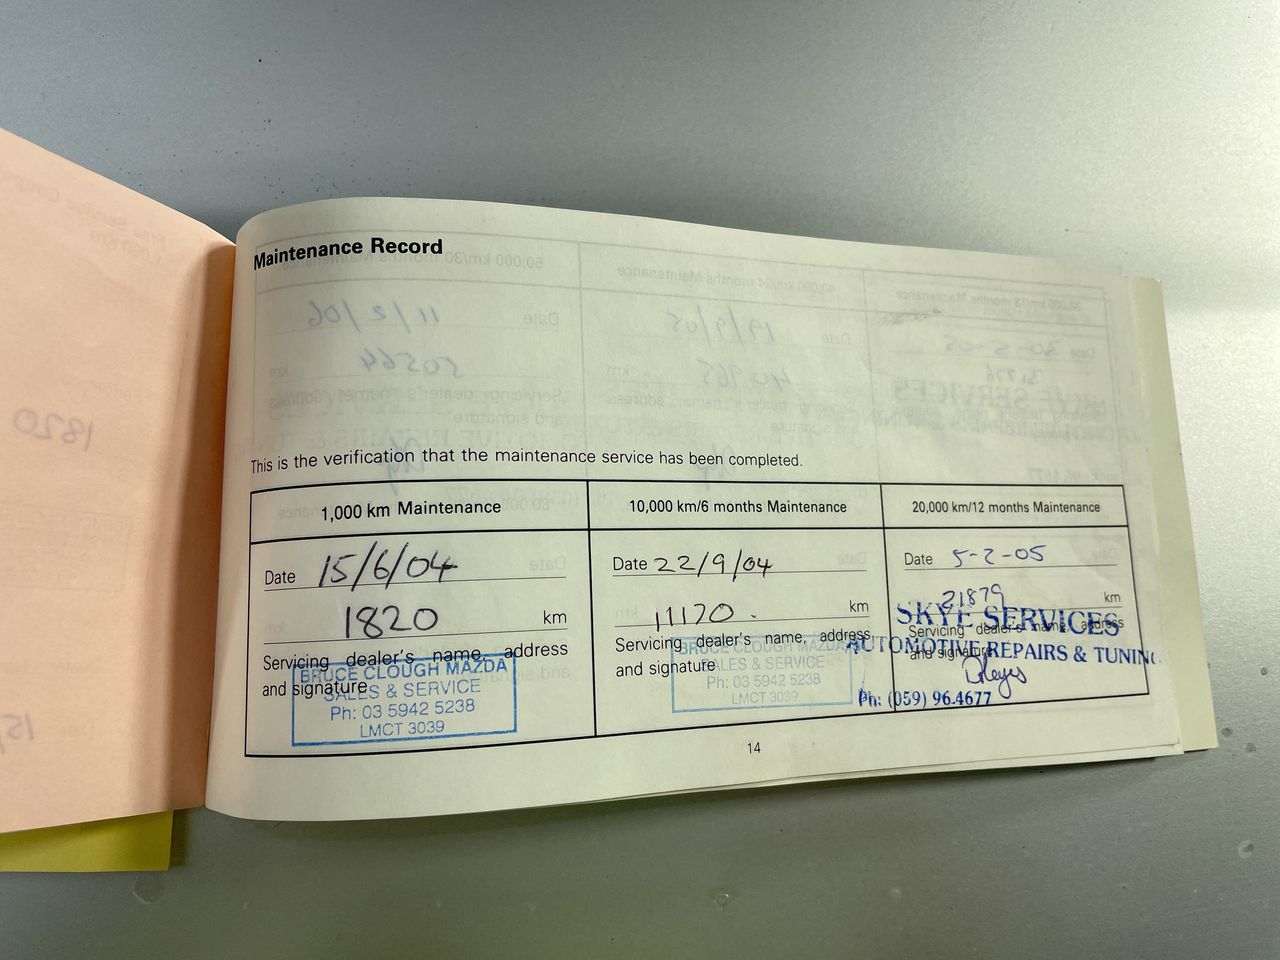 Maintenance Record
This is the verification that the maintenance service has been completed.
1,000 km Maintenance
Date 15/6/04
1820 km
Servicing dealer's name, address
and signature
BRUCE CLOUGH MAZDA
SALES & SERVICE
Ph: 03 5942 5238
LMCT 3039
10,000 km/6 months Maintenance
Date 22/9/04
11170 km
Servicing dealer's name, address
and signature
BRUCE CLOUGH MAZDA
SALES & SERVICE
Ph: 03 5942 5238
LMCT 3039
20,000 km/12 months Maintenance
Date 5-2-05
21879 km
Servicing dealer's name, address
and signature
SKYE SERVICES
AUTOMOTIVE REPAIRS & TUNING
Ph: (059) 96.4677
14
1820